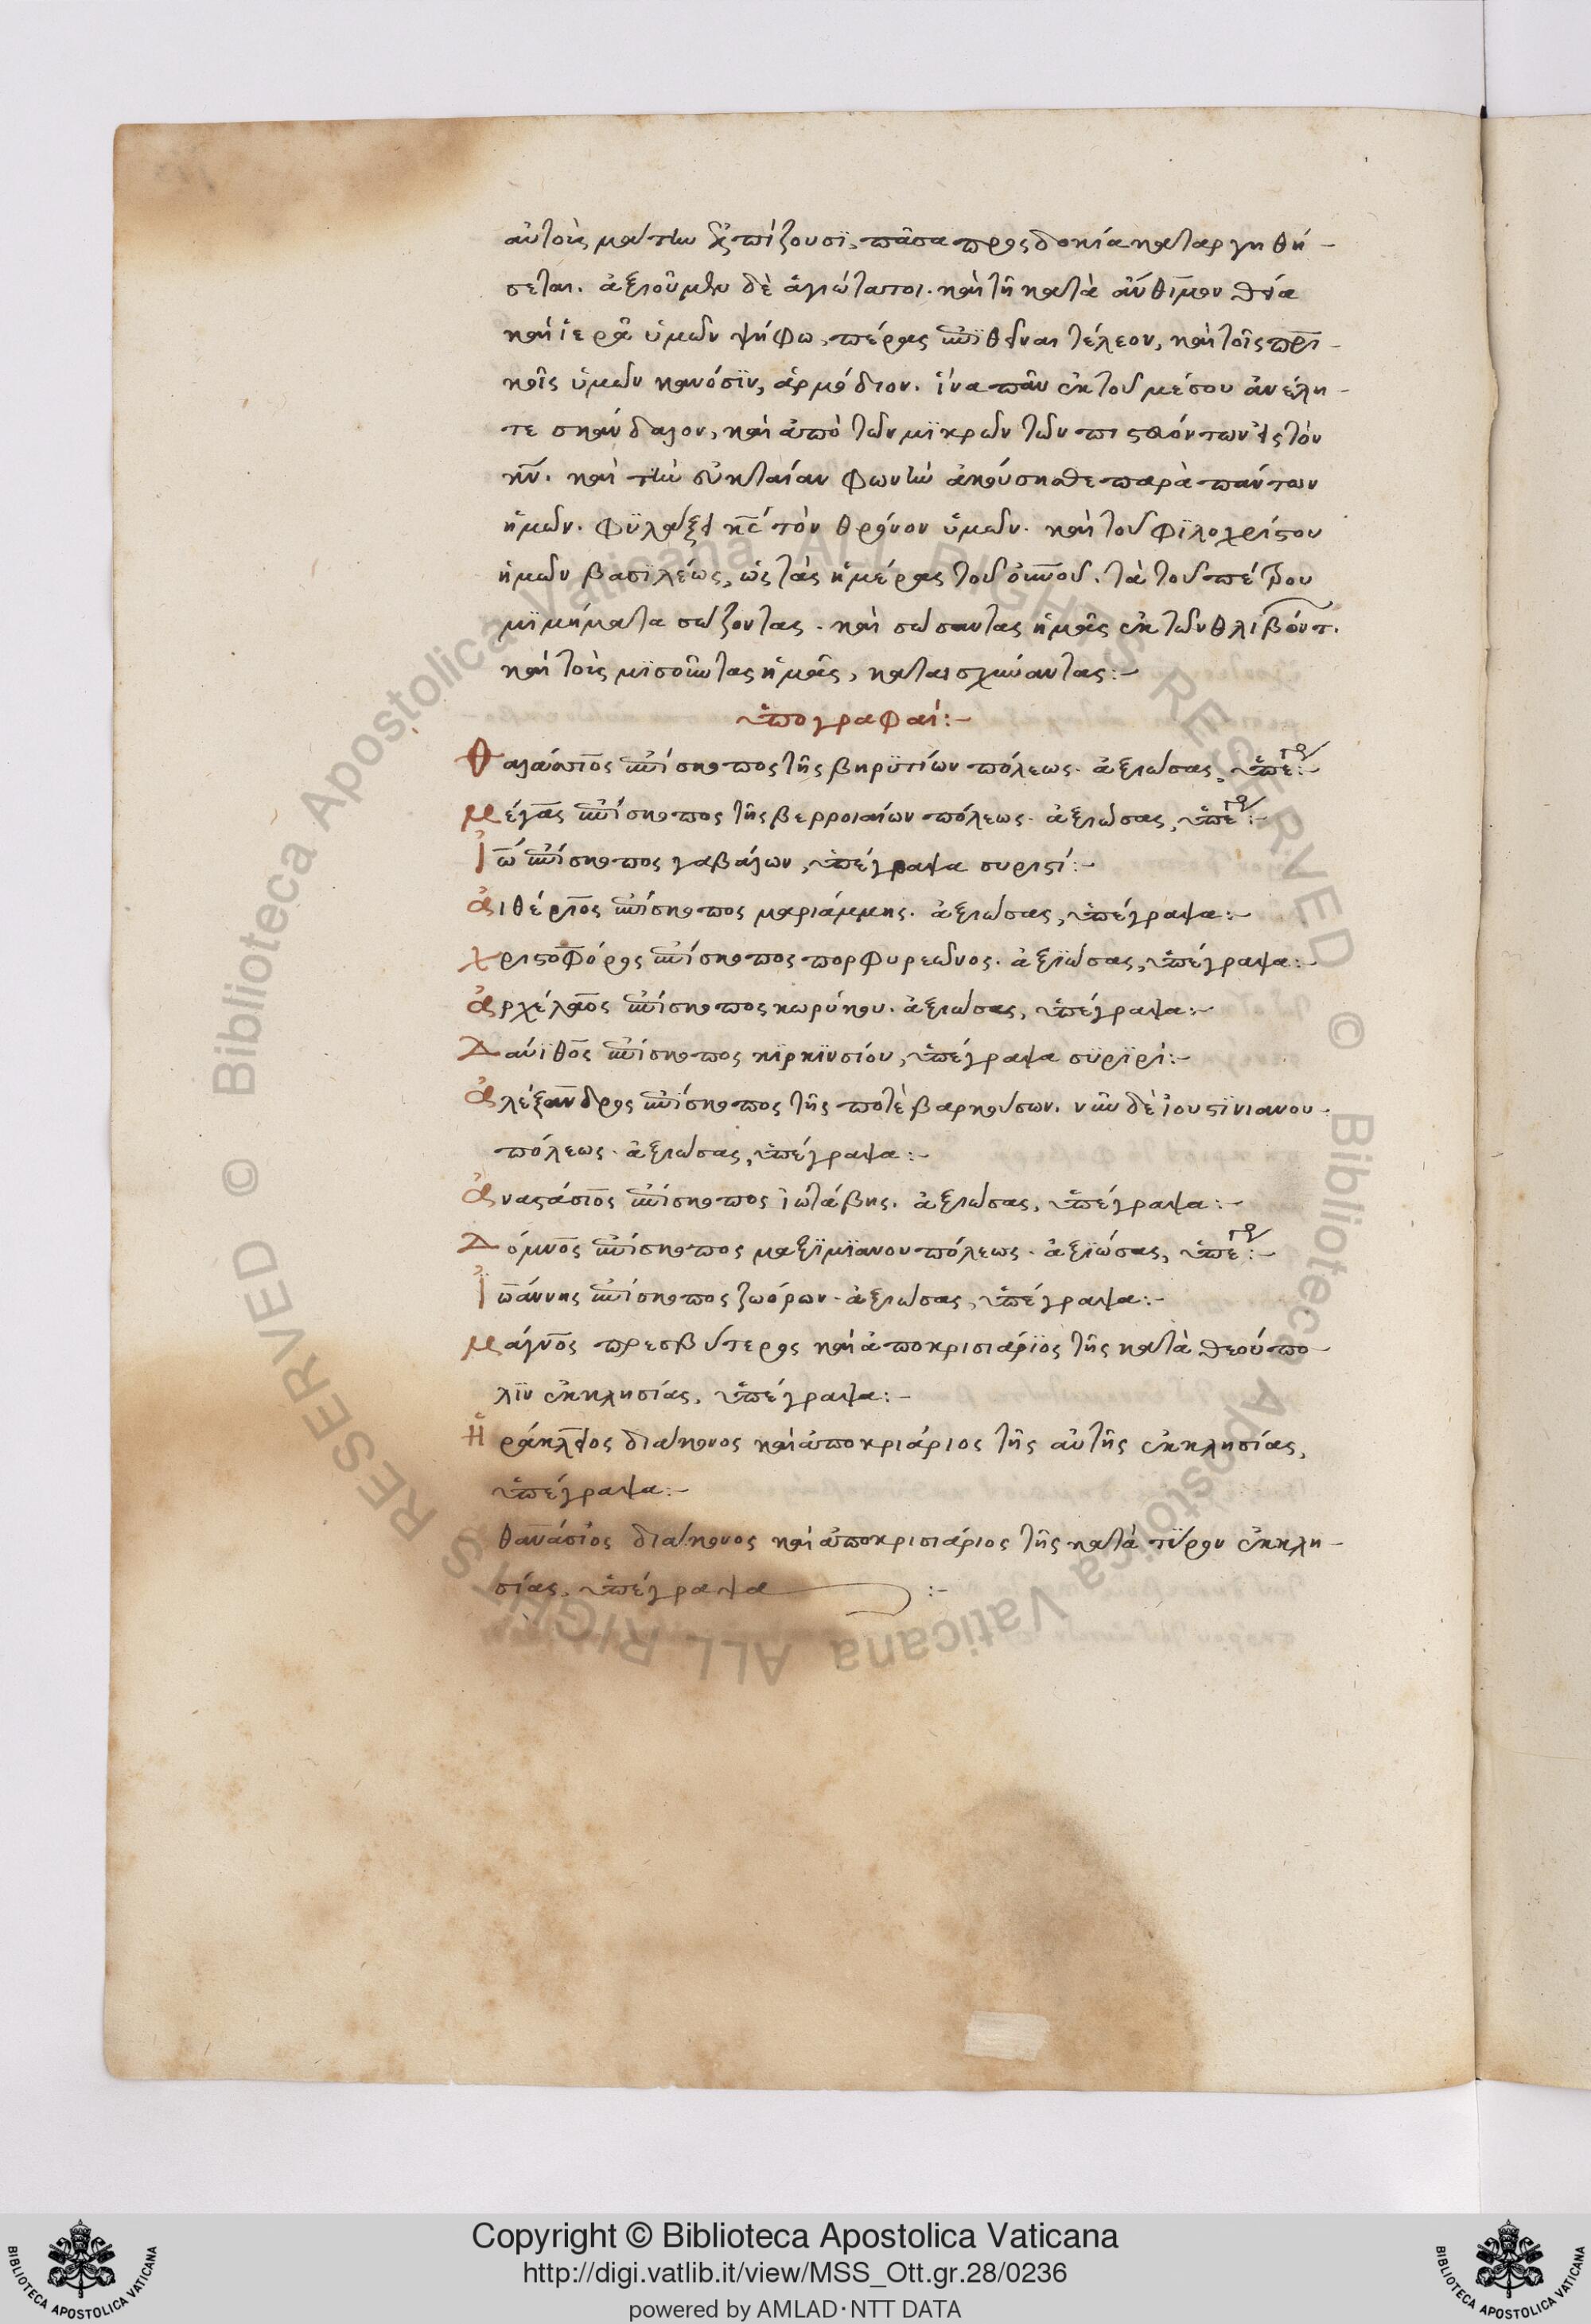 αὐτοῖς μάτην ἐλπίζουσϊ, πᾶσα προςδοκία καταργηθή-
σεται. ἀξιοῦμεν δὲ ἁγιώτατοι. καὶ τῆ κατὰ ἀνθίμου θεία
καὶ ἱερᾶ ὑμῶν ψήφω, πέρας ἐπϊθεῖναι τέλεον, καὶ τοῖς πρι-
κοῖς ὑμῶν κανόσϊν, ἁρμόδιον. ἵνα πᾶν ἐκ τοῦ μέσου ἀνέλη-
τε σκάνδαλον, καὶ ἀπὸ τῶν μϊκρῶν τῶν πιστευόντων εἰς τὸν
κν. καὶ τὴν εὐκταίαν φωνὴν ἀκούσησθε παρὰ πάντων
ἡμῶν. φϋλάξει κς τὸν θρόνον ὑμῶν. καὶ τοῦ φϊλοχρίστου
ἡμῶν βασϊλέως, ὡς τὰς ἡμέρας τοῦ οὐνοῦ. τὰ τοῦ πέτρου
μϊμήματα σώζοντας. καὶ σώσαντας ἡμᾶς ἐκ τῶν θλιβόντ.
καὶ τοὺς μϊσοῦντας ἡμᾶς, καταισχύναντας:-
ὑπογραφαί:-
Θαλάσσιος ἐπίσκοπος τῆς βηρϋτίων πόλεως. ἀξιώσας, ὑπέγρ:-
μέγας ἐπίσκοπος τῆς βερροιαίων πόλεως. ἀξιώσας, ὑπέγρ:-
Ἰω ἐπίσκοπος γαβάλων, ὑπέγραψα συριστί:-
ἀιθέριος ἐπίσκοπος μαριάμμης. ἀξιώσας, ὑπέγραψα:-
χριστοφόρος ἐπίσκοπος πορφυρεῶνος. ἀξϊώσας, ὑπέγραψα:-
ἀρχέλαος ἐπίσκοπος κωρύκου. ἀξιώσας, ὑπέγραψα:-
Δαύϊθος ἐπίσκοπος κϊρκϊνσίου, ὑπέγραψα σϋρϊρί:-
ἀλέξανδρος ἐπίσκοπος τῆς ποτὲ βαρκούσων. νῦν δὲ ἰουστϊνιανου-
πόλεως. ἀξιώσας, ὑπέγραψα:-
ἀναστάσιος ἐπίσκοπος ἰωτάβης. ἀξιώσας, ὑπέγραψα:-
Δόμνος ἐπίσκοπος μαξϊμϊανουπόλεως. ἀξϊώσας, ὑπέγρ:-
Ἰωάννης ἐπίσκοπος ζωόρων. ἀξιώσας, ὑπέγραψα:-
μάγνος πρεσβύτερος καὶ ἀποκρισιάρϊος τῆς κατὰ θεούπο-
λϊν ἐκκλησίας, ὑπέγραψα:-
Ἡράκλειος διάκονος καὶ ἀποκριάριος τῆς αὐτῆς ἐκκλησίας,
ὑπέγραψα:-
θανάσιος διάκονος καὶ ἀποκρισιάριος τῆς κατὰ τύρον ἐκκλη-
σίας, ὑπέγραψα :-
Copyright © Biblioteca Apostolica Vaticana
http://digi.vatlib.it/view/MSS_Ott.gr.28/0236
powered by AMLAD·NTT DATA
BIBLIOTECA APOSTOLICA VATICANA
BIBLIOTECA APOSTOLICA VATICANA
© Biblioteca Apostolica Vaticana ALL RIGHTS RESERVED
© Biblioteca Apostolica Vaticana ALL RIGHTS RESERVED